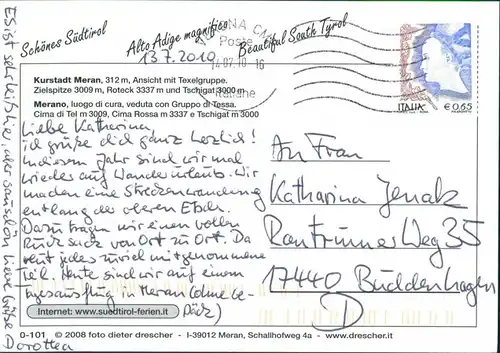 Schönes Südtirol
Alto Adige magnifico
Beautiful South Tyrol
13.7.2010
Poste
14.07.10-16
Italiane
ITALIA
€0,65
Kurstadt Meran, 312 m, Ansicht mit Texelgruppe.
Zielspitze 3009 m, Roteck 3337 m und Tschigat 3000 m
Merano, luogo di cura, veduta con Gruppo di Tessa.
Cima di Tel m 3009, Cima Rossa m 3337 e Tschigat m 3000
Liebe Katharina,
ich grüße dich ganz herzlich!
In diesem Jahr sind wir mal
wieder auf Wanderurlaub. Wir
machen eine Streckenwanderung
entlang der oberen Etsch.
Dazu tragen wir einen vollen
Rucksack von Ort zu Ort. Da
reut jedes zuviel mitgenommene
Teil. Heute sind wir auf einem
Tagesausflug in Meran (ohne Ge-
päck)
Es ist sehr heiß hier, aber sauschön Liebe Grüße
Dorothea
An Frau
Katharina Jenak
Rantriner Weg 35
17440 Buddenhagen
D
Internet: www.suedtirol-ferien.it
0-101 © 2008 foto dieter drescher - I-39012 Meran, Schallhofweg 4a - www.drescher.it